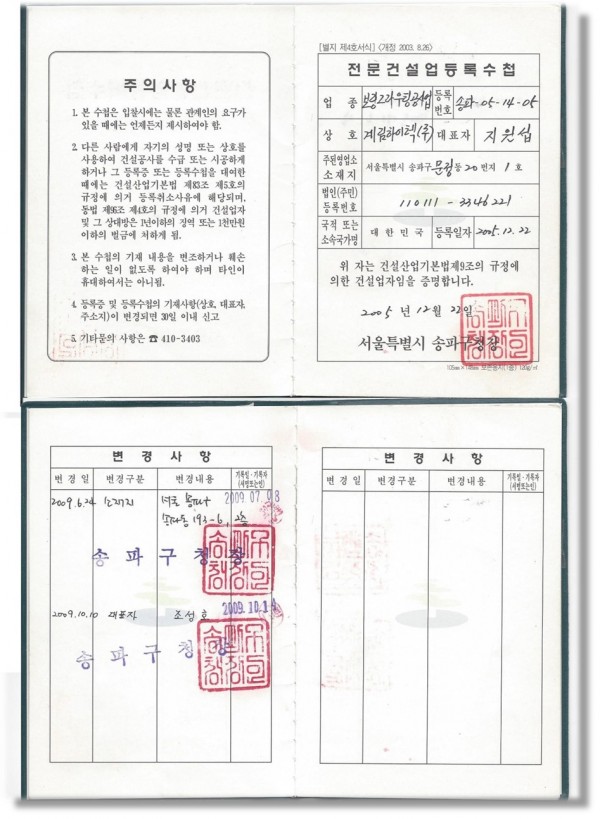 주 의 사 항
1. 본 수첩은 입찰시에는 물론 관계인의 요구가
있을 때에는 언제든지 제시하여야 함.
2. 다른 사람에게 자기의 성명 또는 상호를
사용하여 건설공사를 수급 또는 시공하게
하거나 그 등록증 또는 등록수첩을 대여한
때에는 건설산업기본법 제83조 제5호의
규정에 의거 등록취소사유에 해당되며,
동법 제96조 제4호의 규정에 의거 건설업자
및 그 상대방은 1년이하의 징역 또는 1천만원
이하의 벌금에 처하게 됨.
3. 본 수첩의 기재 내용을 변조하거나 훼손
하는 일이 없도록 하여야 하며 타인이
휴대하여서는 아니됨.
4. 등록증 및 등록수첩의 기재사항(상호, 대표자,
주소지)이 변경되면 30일 이내 신고
5. 기타문의 사항은 ☎ 410-3403
[별지 제4호서식] <개정 2003. 8.26>
전문건설업등록수첩
업 종 보링그라우팅공사업 등록번호 송파-05-14-05
상 호 계림하이텍(주) 대표자 지원섭
주된영업소 소재지 서울특별시 송파구 문정동 20번지 1호
법인(주민)등록번호 110111-3346221
국적 또는 소속국가명 대한민국 등록일자 2005.12.22
위 자는 건설산업기본법제9조의 규정에
의한 건설업자임을 증명합니다.
2005 년 12 월 22 일
서울특별시 송파구청장
변 경 사 항
변 경 일 변경구분 변경내용 기록일·기록자 (서명또는인)
2009.6.24 소재지 서울 송파구 2009.07.08
송파동 193-6, 2층
송파구청장
2009.10.10 대표자 조성호 2009.10.1
송파구청장
변 경 사 항
변 경 일 변경구분 변경내용 기록일·기록자 (서명또는인)